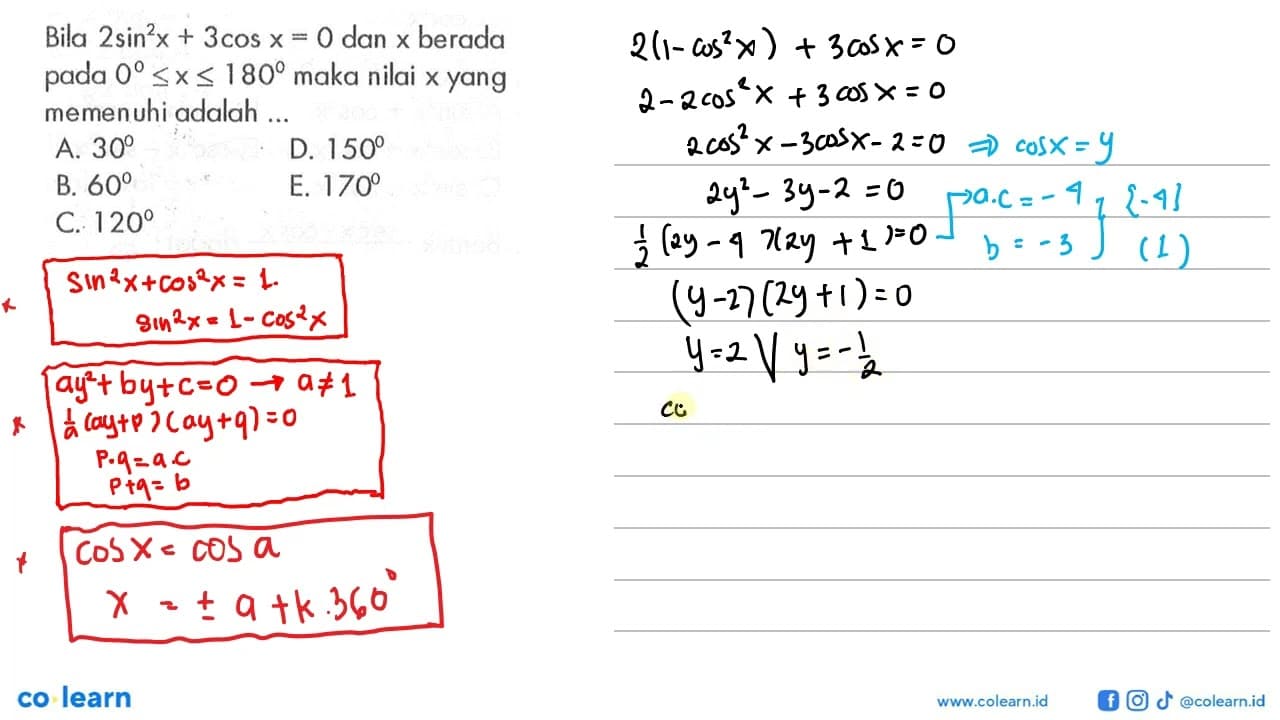 Bila 2sin²x + 3cos x = 0 dan x berada
pada 0⁰ ≤ x ≤ 180⁰ maka nilai x yang
memenuhi adalah ...
A. 30⁰ D. 150⁰
B. 60⁰ E. 170⁰
C. 120⁰
* sin²x + cos²x = 1.
sin²x = 1 - cos²x
* ay² + by + c = 0 → a ≠ 1
1/a (ay+p)(ay+q) = 0
p.q = a.c
p+q = b
* cos x = cos a
x = ± a + k.360°
2(1 - cos²x) + 3cos x = 0
2 - 2cos²x + 3cos x = 0
2cos²x - 3cos x - 2 = 0 ⇒ cos x = y
2y² - 3y - 2 = 0
a.c = -4 } {-4}
1/2 (2y - 4)(2y + 1) = 0
b = -3 (1)
(y - 2)(2y + 1) = 0
y = 2 V y = -1/2
co
co learn
www.colearn.id @colearn.id